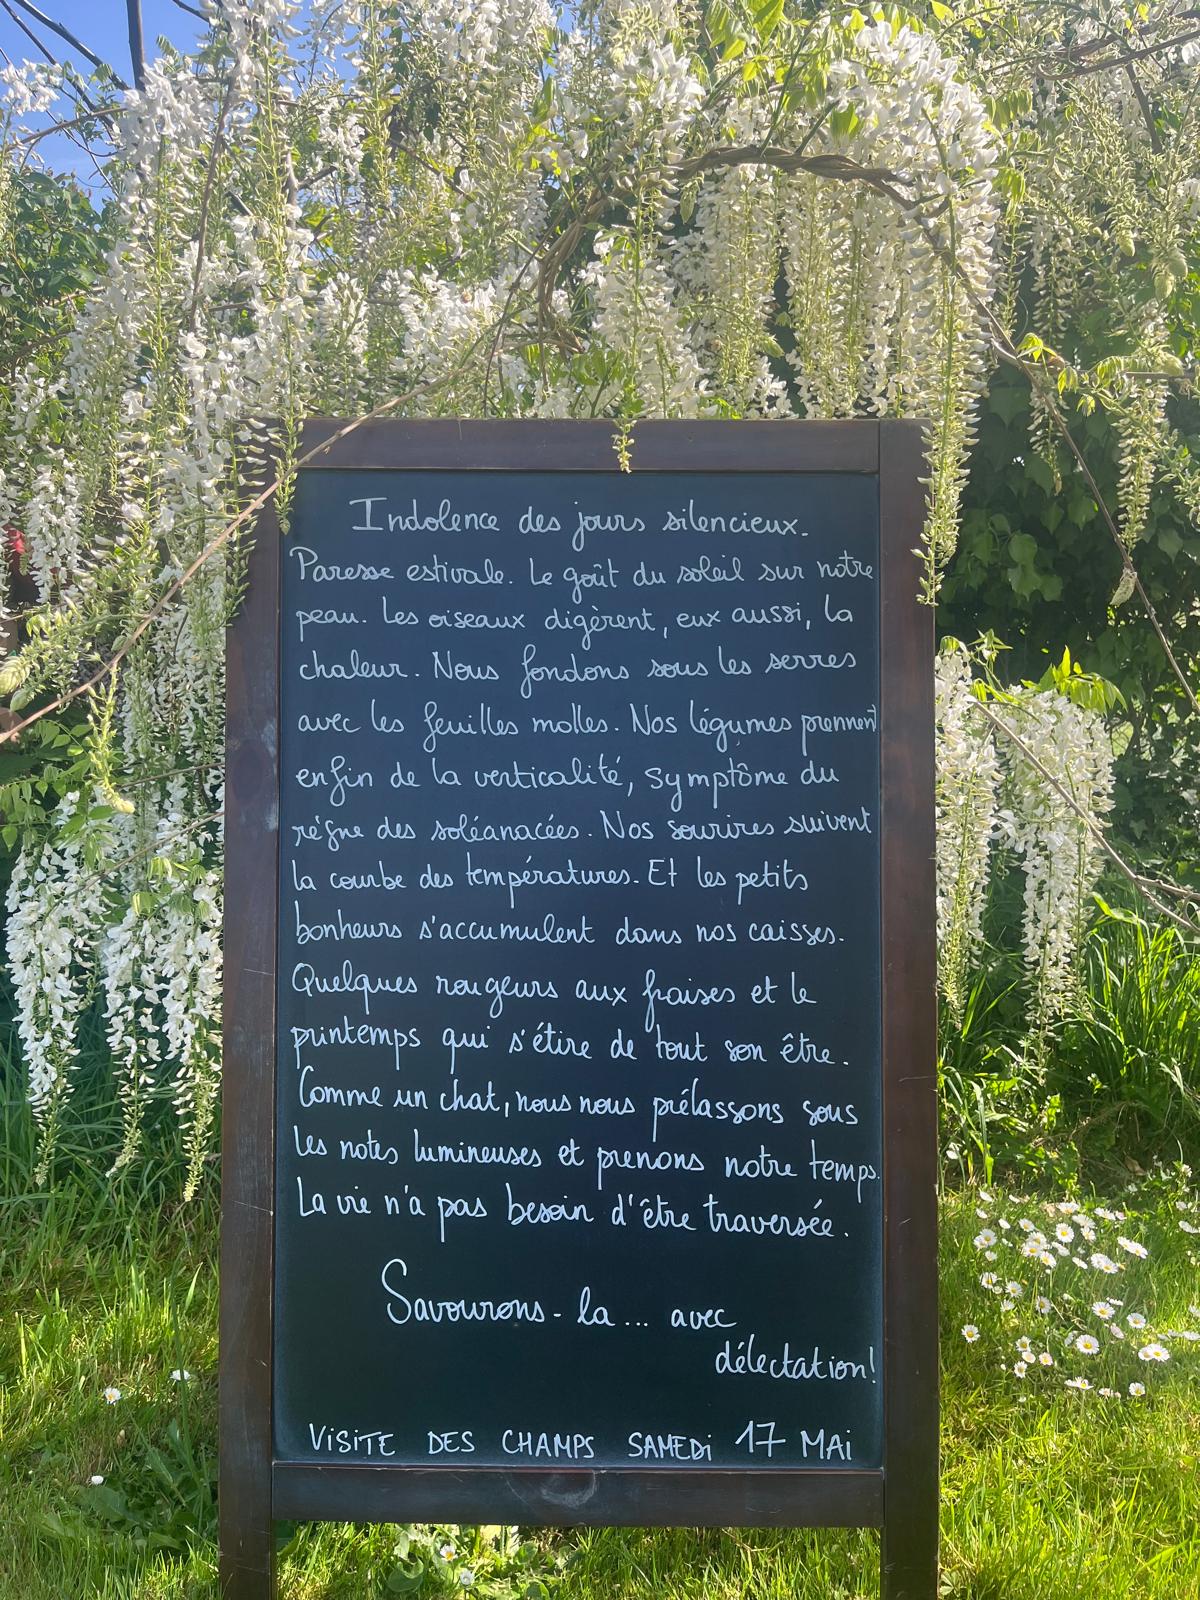 Indolence des jours silencieux.
Paresse estivale. Le goût du soleil sur notre
peau. Les oiseaux digèrent, eux aussi, la
chaleur. Nous fondons sous les serres
avec les feuilles molles. Nos légumes prennent
enfin de la verticalité, symptôme du
règne des soléanacées. Nos sourires suivent
la courbe des températures. Et les petits
bonheurs s'accumulent dans nos caisses.
Quelques rougeurs aux fraises et le
printemps qui s'étire de tout son être.
Comme un chat, nous nous prélassons sous
les notes lumineuses et prenons notre temps.
La vie n'a pas besoin d'être traversée.
Savourons-la... avec
délectation!
VISITE DES CHAMPS SAMEDI 17 MAI